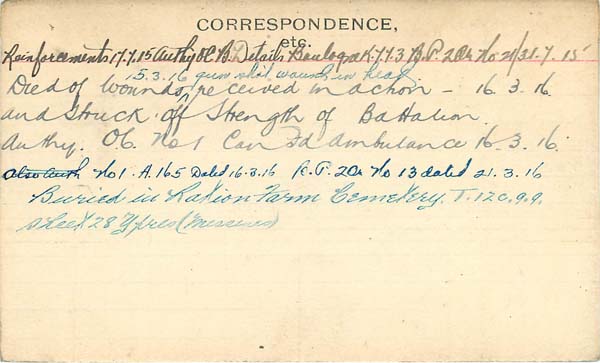 CORRESPONDENCE,
etc.
Reinforcements 17.7.15 Authy OC B. Details Boulogne K.443 B.P. 2 Or No 21/31.7.15
15.3.16 gun shot wounds in head
Died of Wounds, received in action - 16.3.16
and Struck off Strength of Battalion.
Authy. O.C. No 1 Can Fd Ambulance 16.3.16.
also Auth No 1. A.165 Dated 16.3.16 B.P. 2 Or No 13 dated 21.3.16
Buried in Ration Farm Cemetery. T.12c.9.9.
Sheet 28 Ypres (Messines)